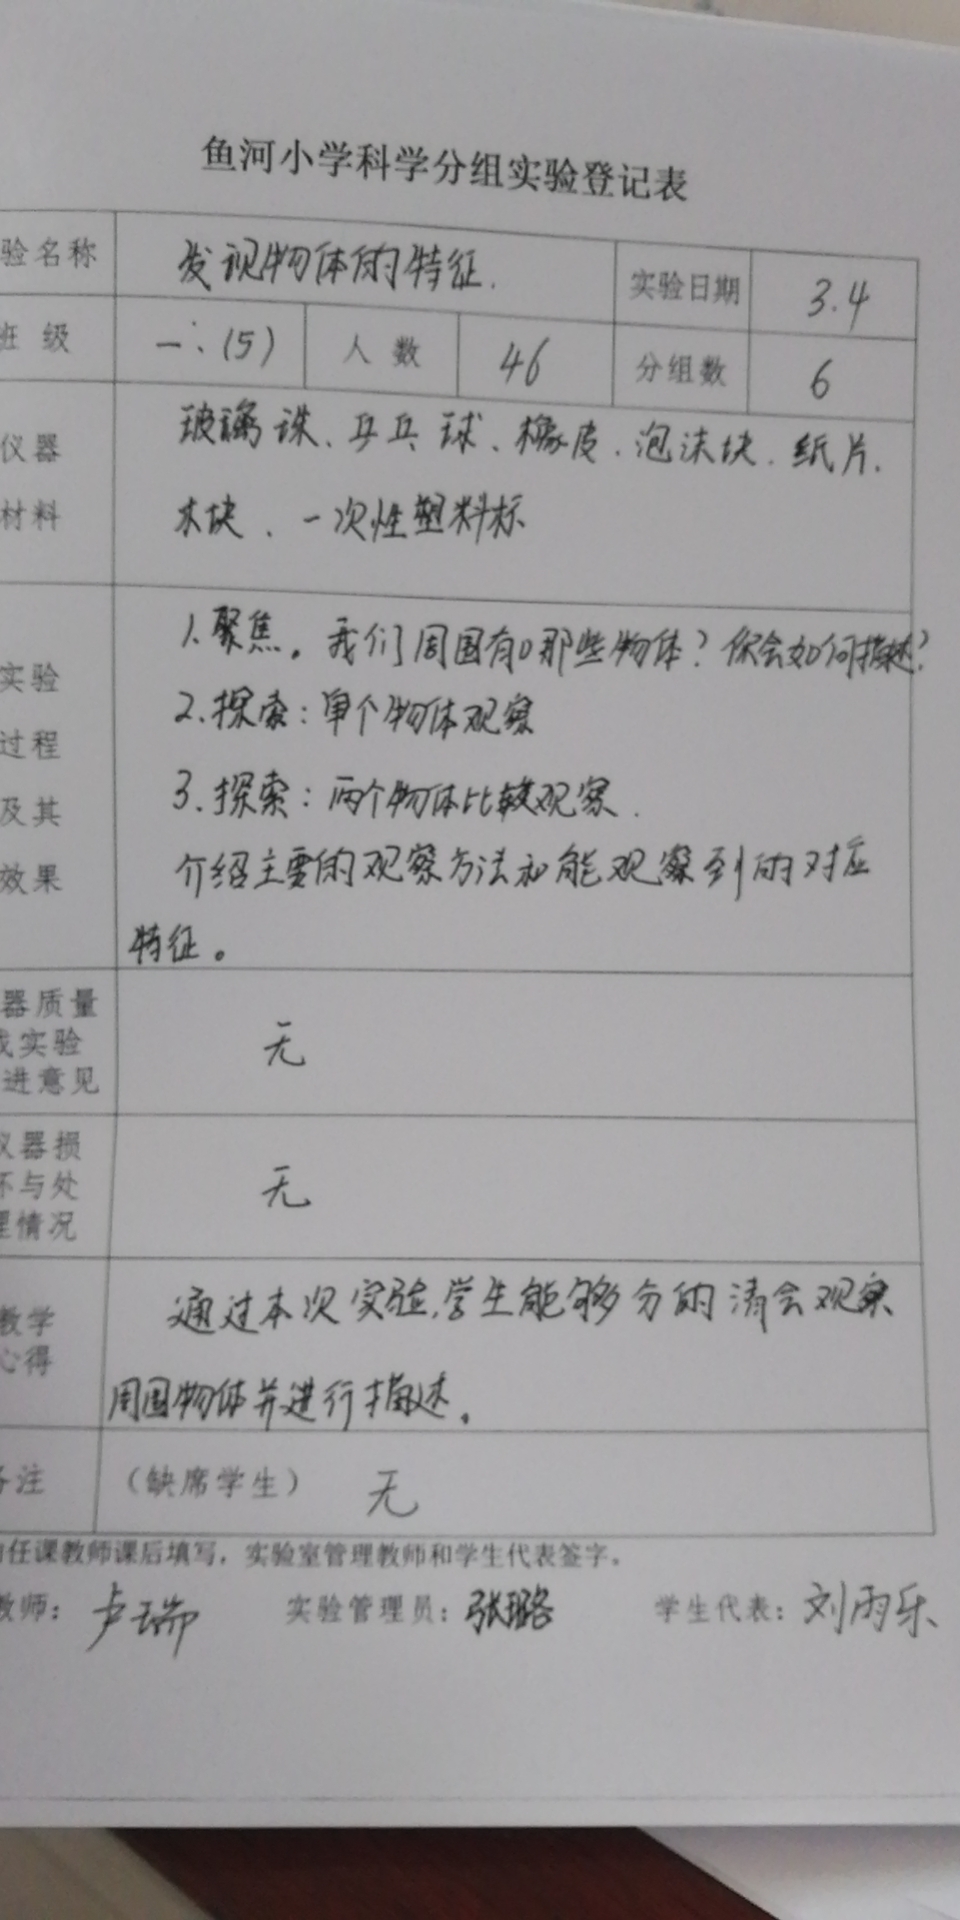 鱼河小学科学分组实验登记表
验名称 发现物体的特征. 实验日期 3.4
班 级 一.(5) 人 数 46 分组数 6
仪器 玻璃珠、乒乓球、橡皮、泡沫块、纸片、
材料 木块、一次性塑料杯
实验 1.聚焦。我们周围有哪些物体?你会如何描述?
过程 2.探索:单个物体观察
及其 3.探索:两个物体比较观察.
效果 介绍主要的观察方法和能观察到的对应
特征。
器质量
或实验 无
进意见
仪器损
坏与处 无
理情况
教学 通过本次实验,学生能够分的清会观察
心得 周围物体并进行描述。
备注 (缺席学生) 无
由任课教师课后填写,实验室管理教师和学生代表签字。
教师: 卢瑞 实验管理员: 张璐 学生代表: 刘雨乐